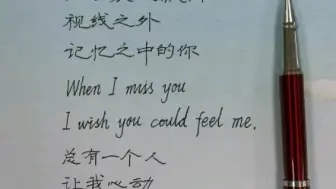 视线之外
记忆之中的你
When I miss you
I wish you could feel me.
总有一个人
让我心动